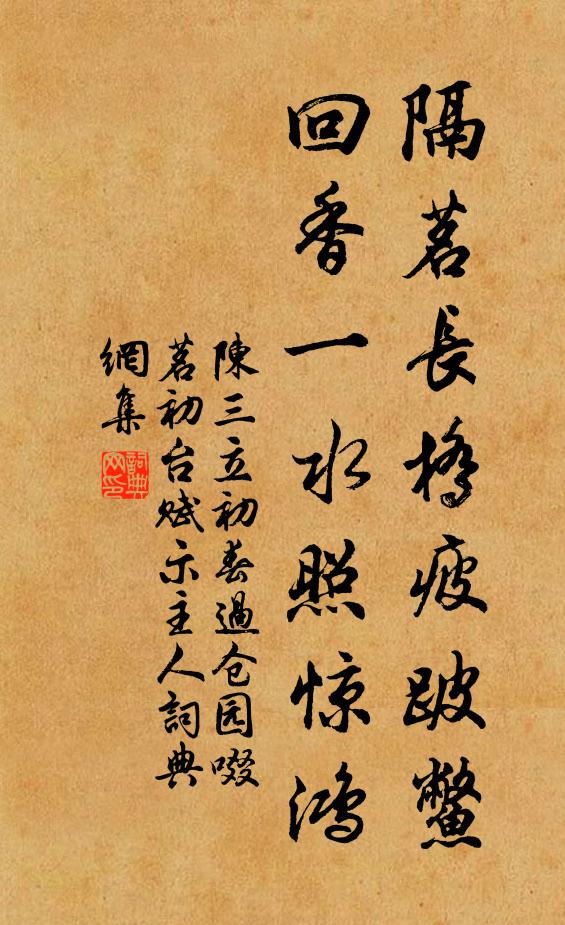 隔茗長橋疲跛鱉
回香一水照惊鴻
陳三立初春過仓园啜
茗初台赋示主人詞典
網集
詞典
网印